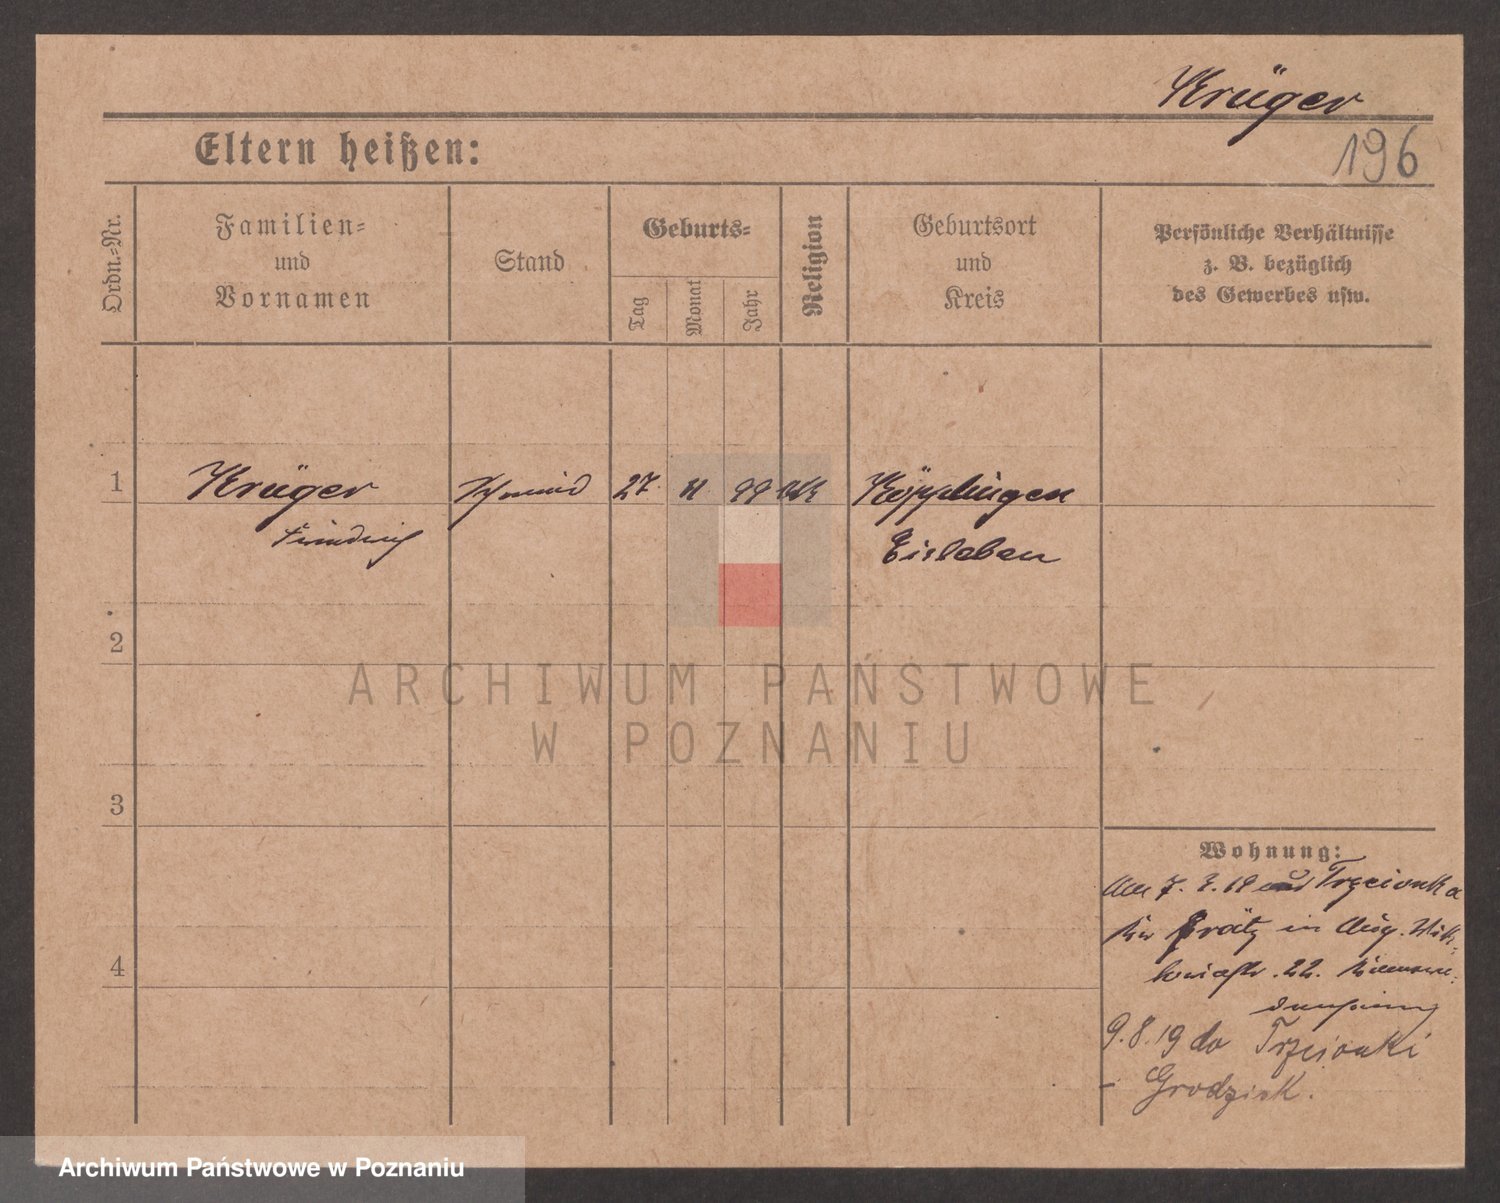 Krüger
196
Eltern heißen:
Ordn.-Nr.
Familien- und Vornamen
Stand
Geburts-
Tag
Monat
Jahr
Religion
Geburtsort und Kreis
Persönliche Verhältnisse z. B. bezüglich des Gewerbes usw.
1
Krüger
Schmied
27.
11.
99
Köpplingen
Friedrich
Eisleben
2
3
4
Wohnung:
7. 3. 19 Trzcionka
Grätz in Aug. Vik-
toriastr. 22.
9.8.19 do Trzcionki
- Grodzisk.
ARCHIWUM PAŃSTWOWE
W POZNANIU
Archiwum Państwowe w Poznaniu